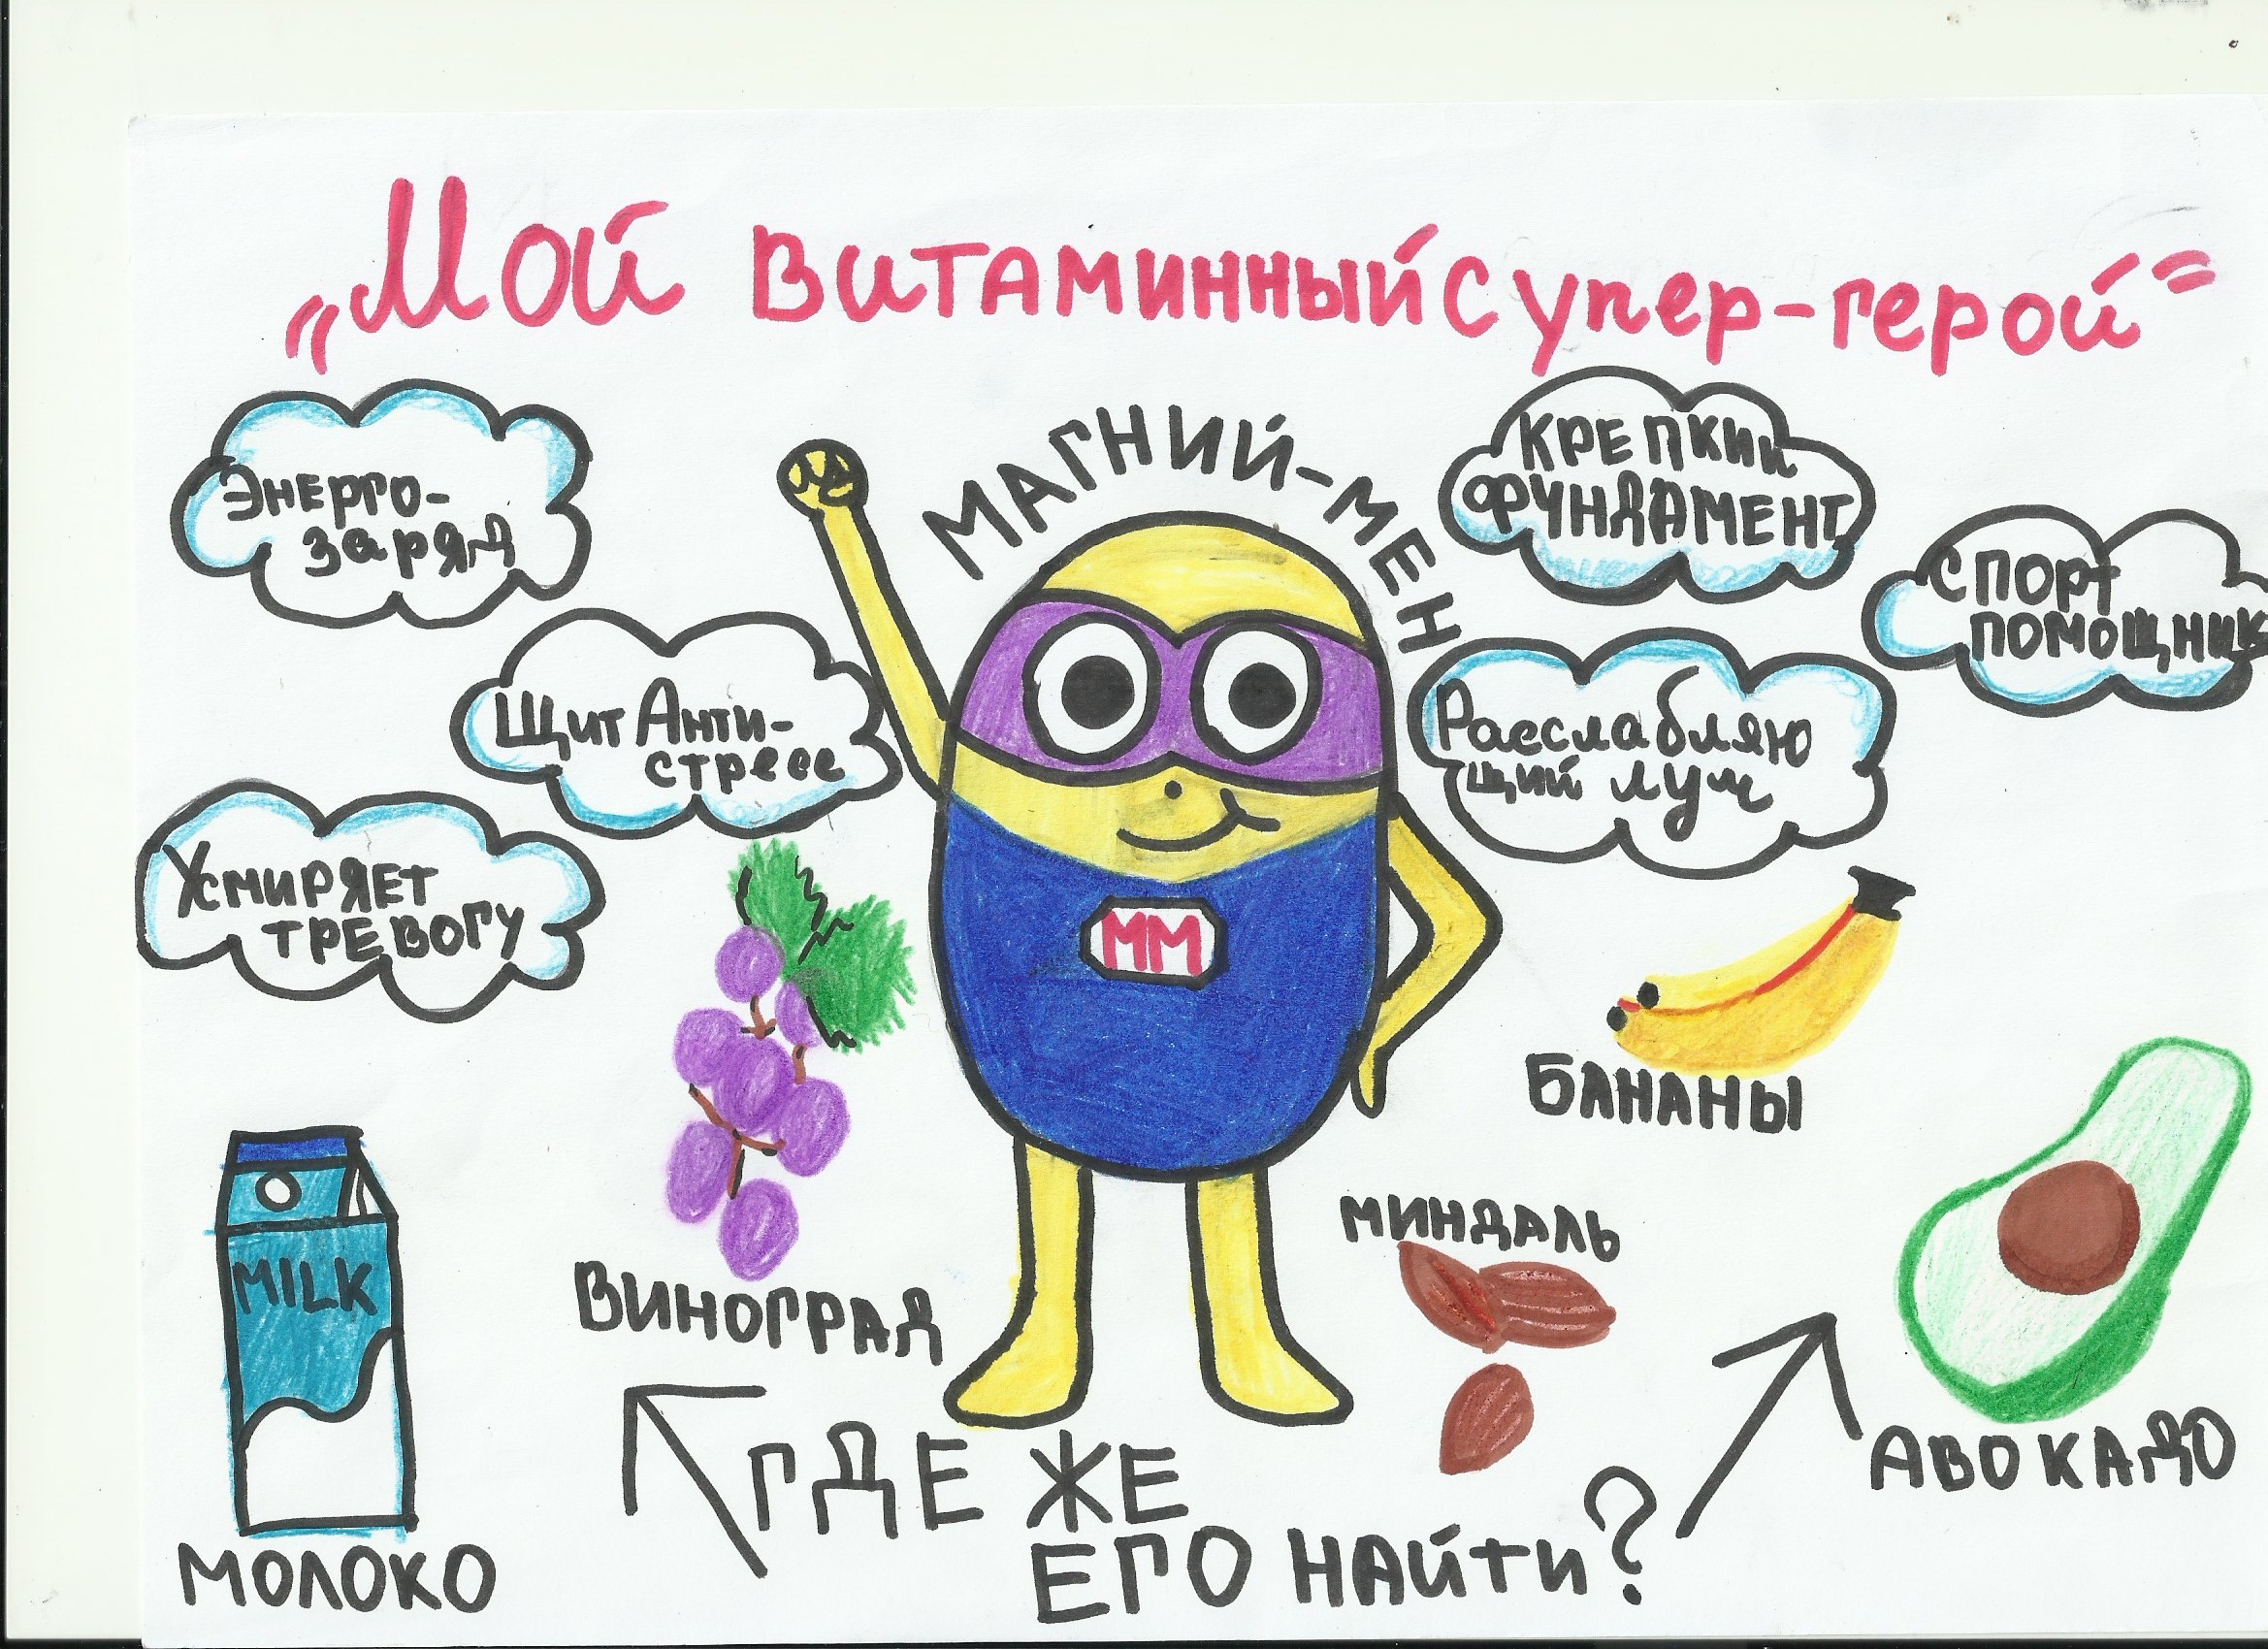 „Мой витаминный супер-герой"
МАГНИЙ-МЕН
Энерго-
заряд
Щит Анти-
стресс
Усмиряет
тревогу
КРЕПКИЙ
ФУНДАМЕНТ
СПОРТ
ПОМОЩНИК
Расслабляю
щий луч
ММ
MILK
МОЛОКО
ВИНОГРАД
БАНАНЫ
МИНДАЛЬ
АВОКАДО
ГДЕ ЖЕ
ЕГО НАЙТИ?